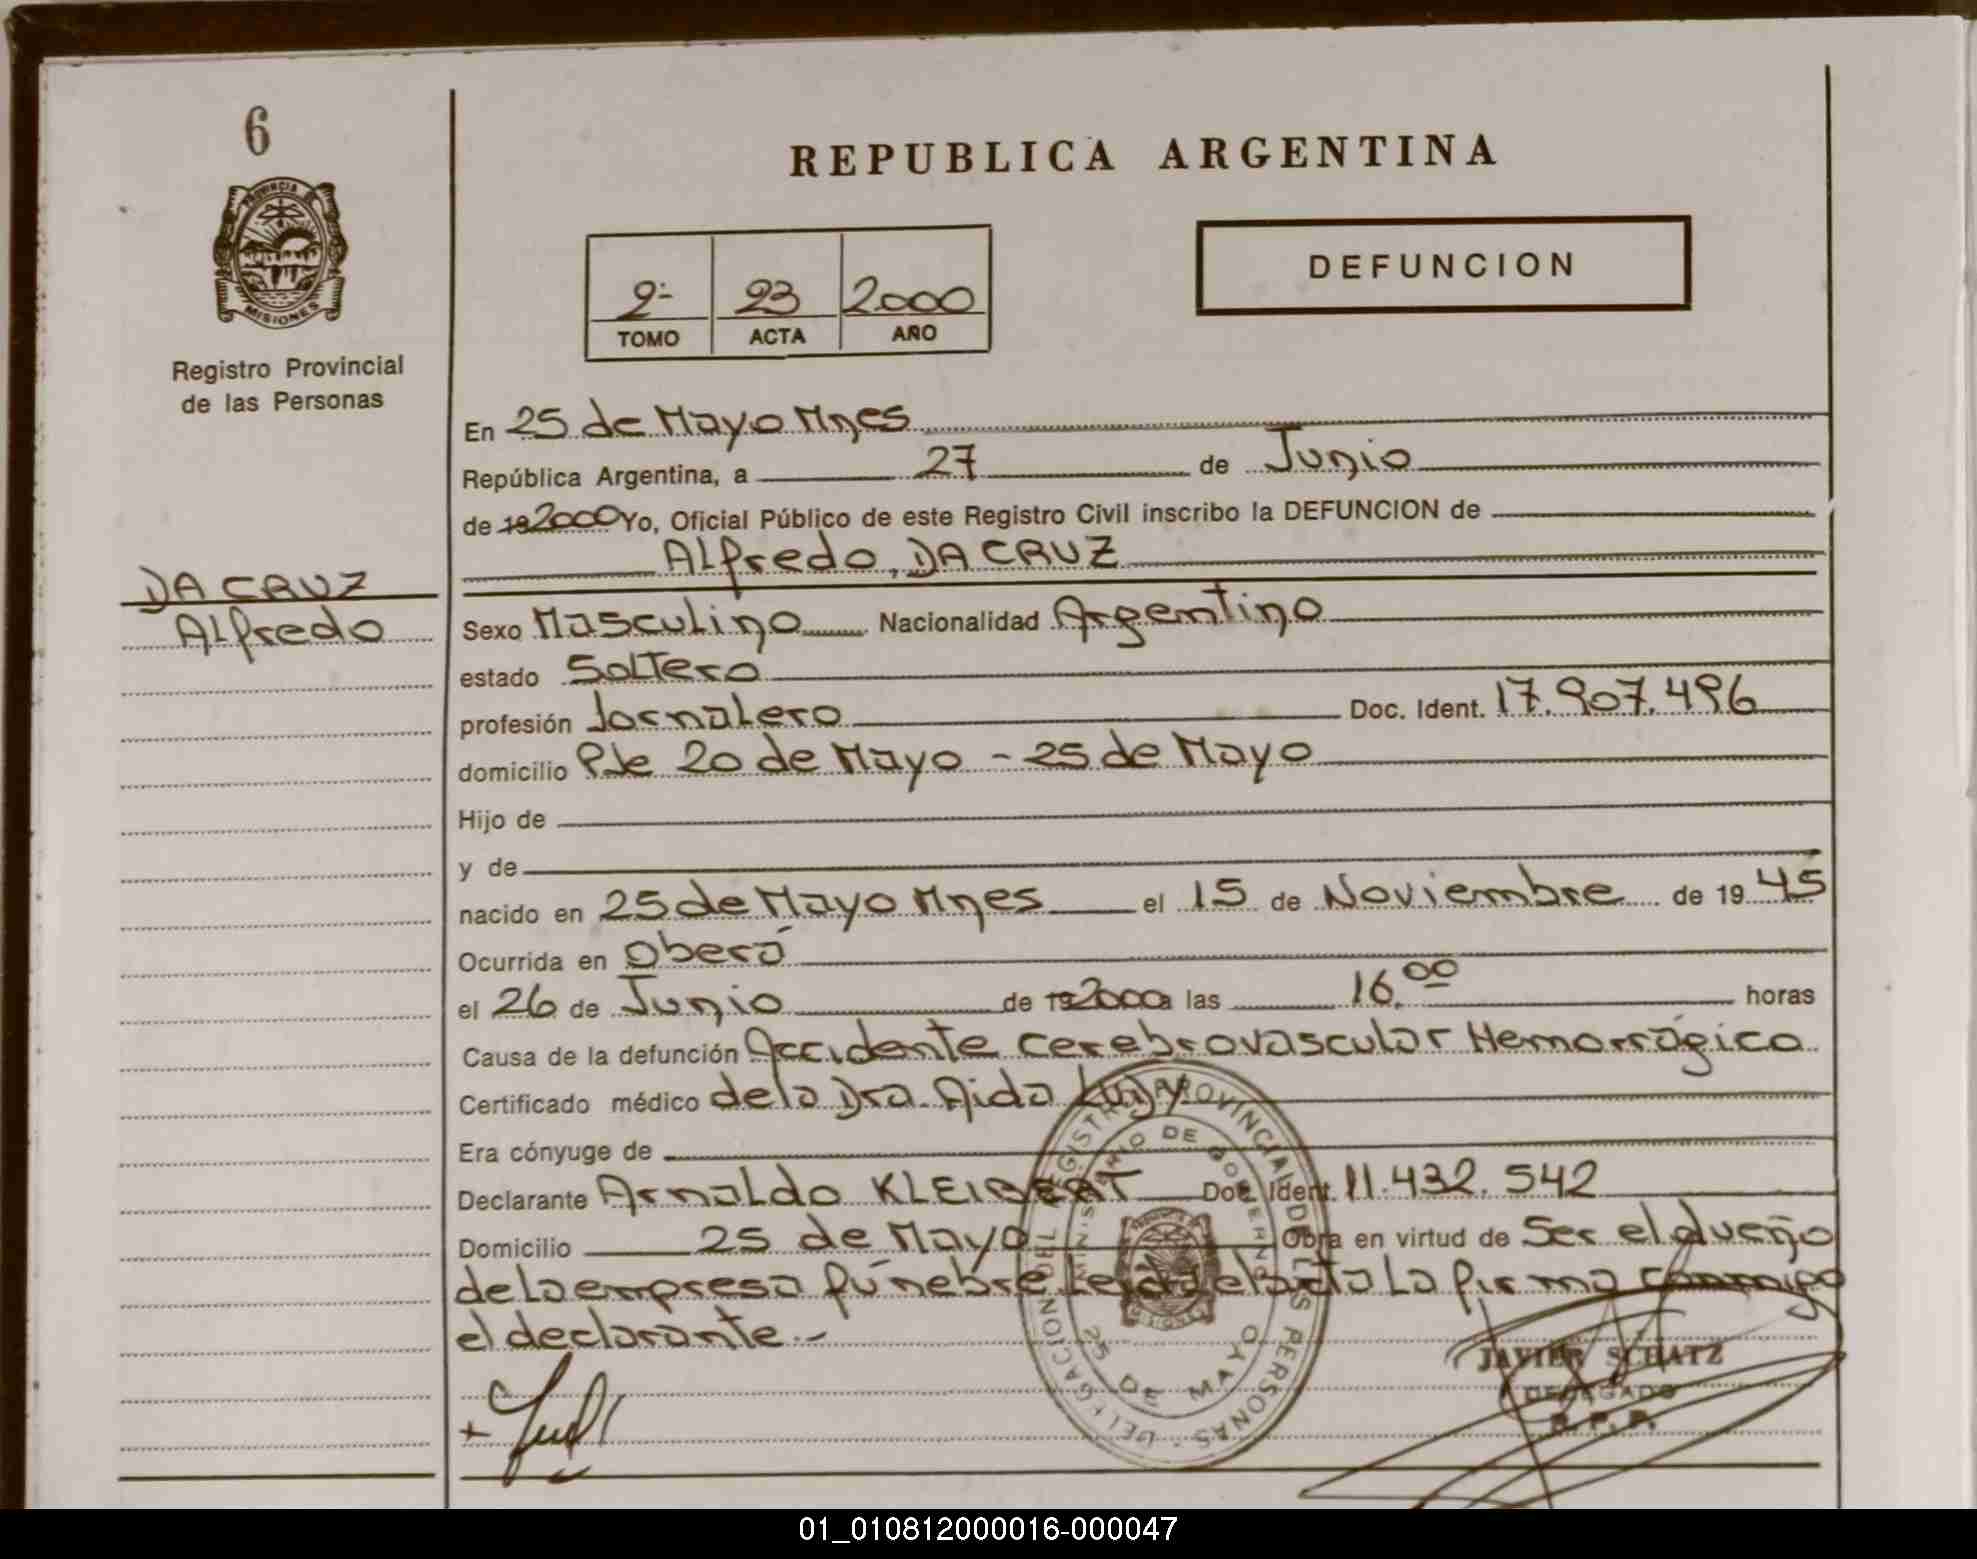 6
PROVINCIA DE
MISIONES
Registro Provincial
de las Personas
DA CRUZ
Alfredo
REPUBLICA ARGENTINA
2- 23 2000
TOMO ACTA AÑO
DEFUNCION
En 25 de Mayo Mnes
República Argentina, a 27 de Junio
de 192000 Yo, Oficial Público de este Registro Civil inscribo la DEFUNCION de
Alfredo, DA CRUZ
Sexo Masculino Nacionalidad Argentino
estado Soltero
profesión Jornalero Doc. Ident. 17.907.496
domicilio Pje 20 de Mayo - 25 de Mayo
Hijo de
y de
nacido en 25 de Mayo Mnes el 15 de Noviembre de 19 45
Ocurrida en Oberá
el 26 de Junio de 192000 a las 16,00 horas
Causa de la defunción Accidente cerebrovascular Hemorrágico
Certificado médico de la Dra. Aida
Era cónyuge de
Declarante Arnaldo KLEIBERT Doc. Ident. 11.432.542
Domicilio 25 de Mayo Obra en virtud de Ser el dueño
de la empresa fúnebre Leida el acta La firma conmigo
el declarante.-
DELEGACION DEL REGISTRO PROVINCIAL DE LAS PERSONAS
MINISTERIO DE GOBIERNO
25 DE MAYO
JAVIER SCHATZ
DELEGADO
R. P. P.
01_010812000016-000047